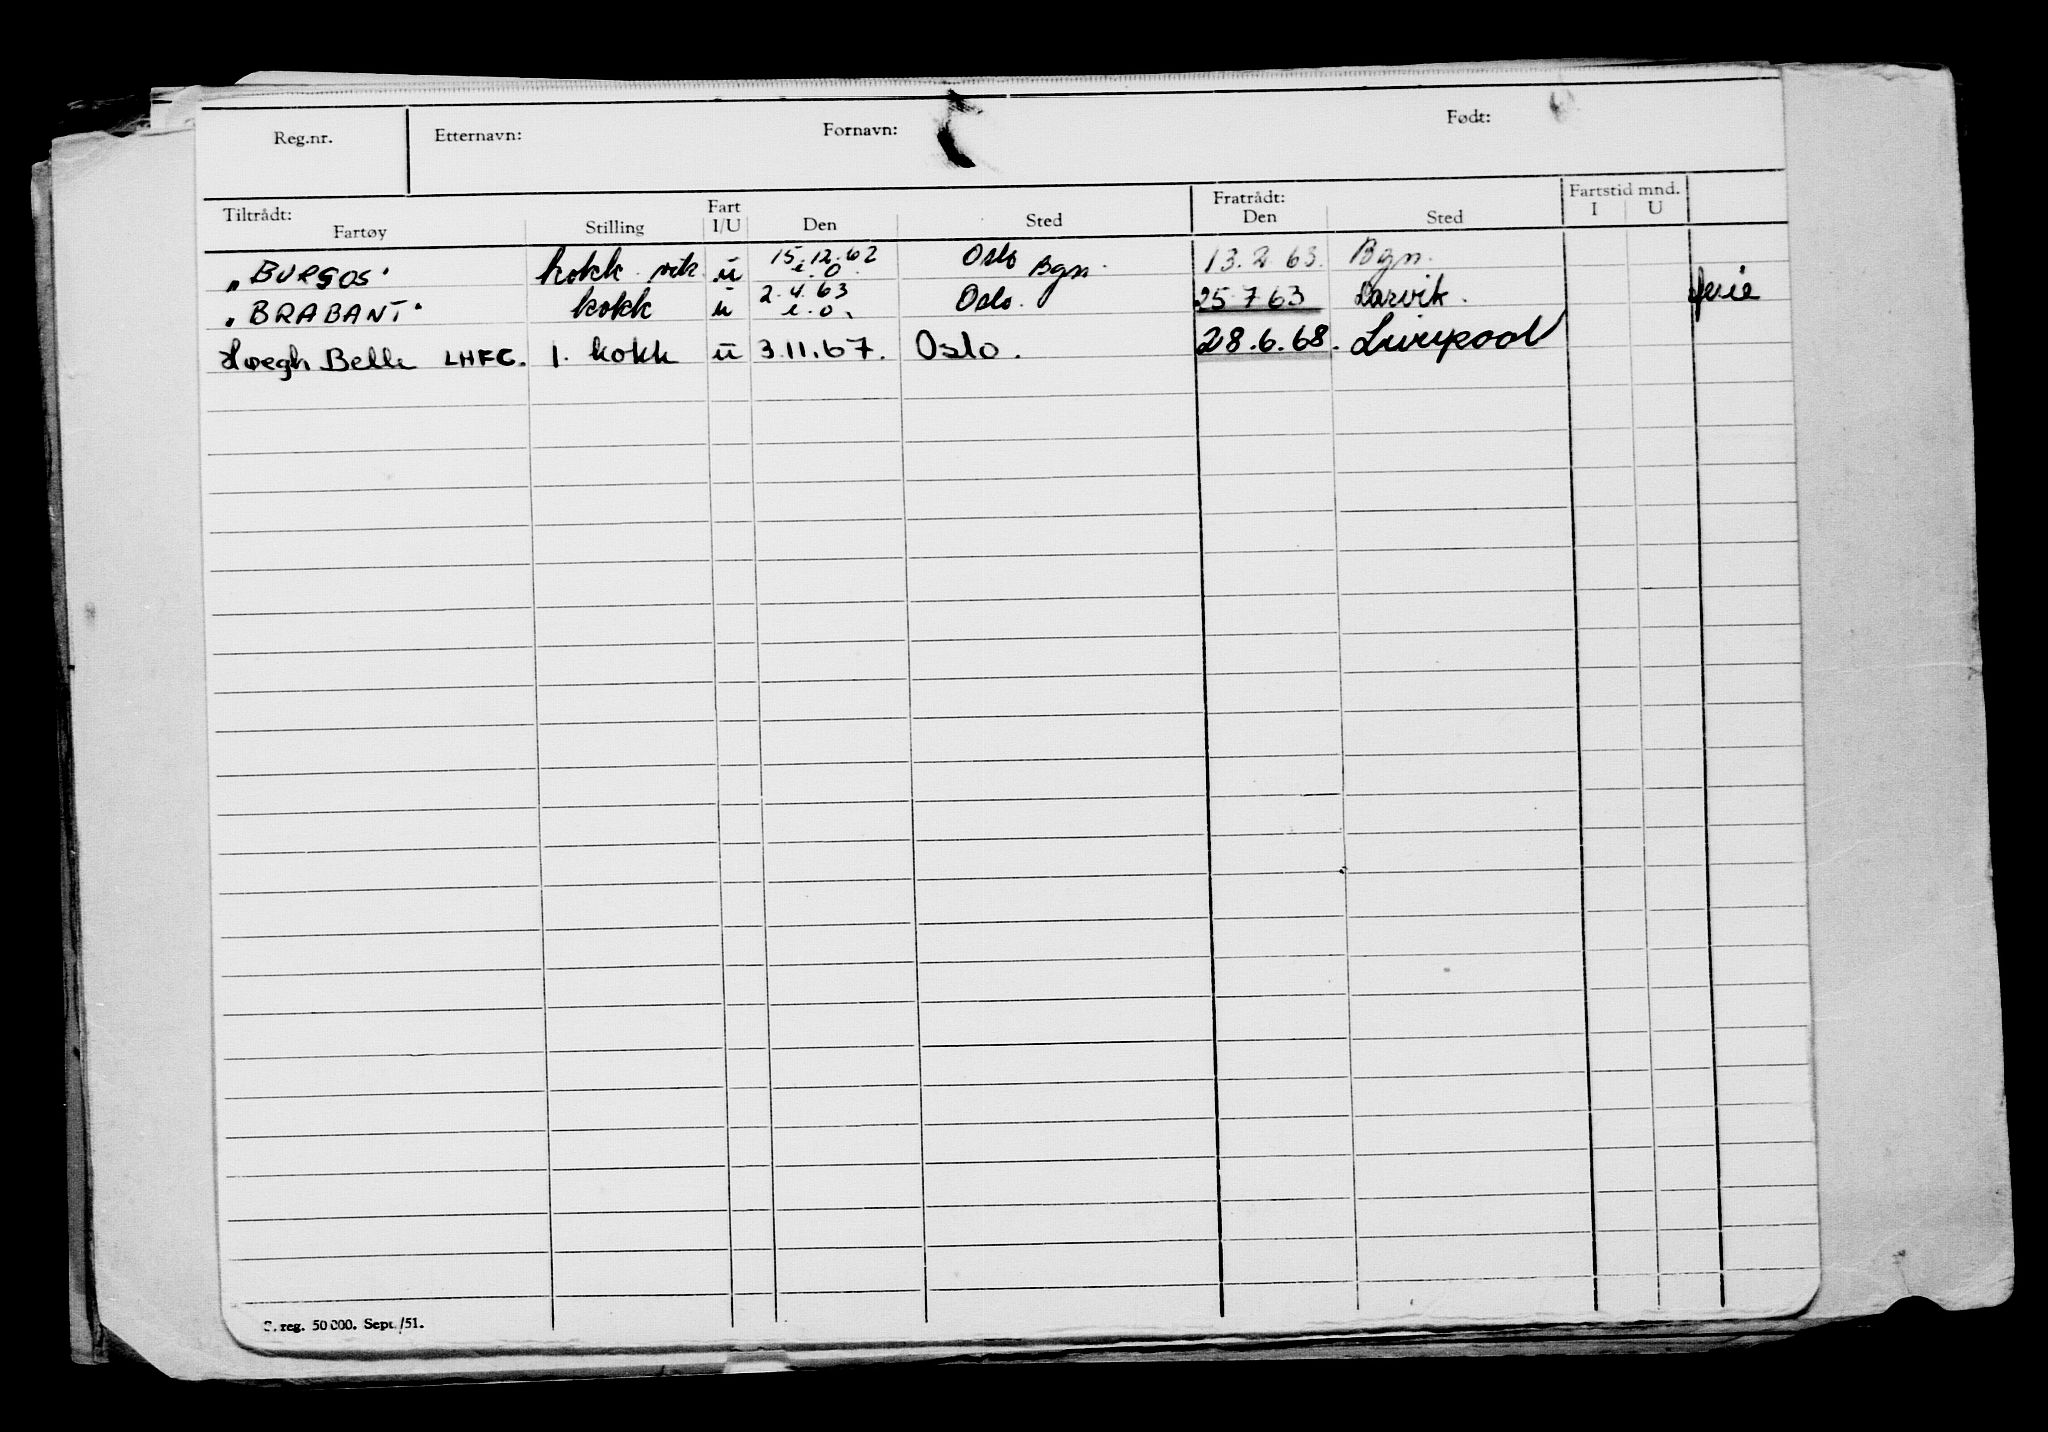 Reg.nr. Etternavn: Fornavn: Født:
Tiltrådt: Fratrådt: Fartstid mnd.
Fartøy Stilling Fart I/U Den Sted Den Sted I U
„BURGOS" kokk vik u 15.12.62 e.o. Oslo Bgn. 13.2.63. Bgn.
„BRABANT" kokk u 2.4.63 e.o. Oslo. 25.7.63 Larvik. ferie
Høegh Belle LHFC. 1. kokk u 3.11.67. Oslo. 28.6.68. Liverpool
S. reg. 50 000. Sept./51.